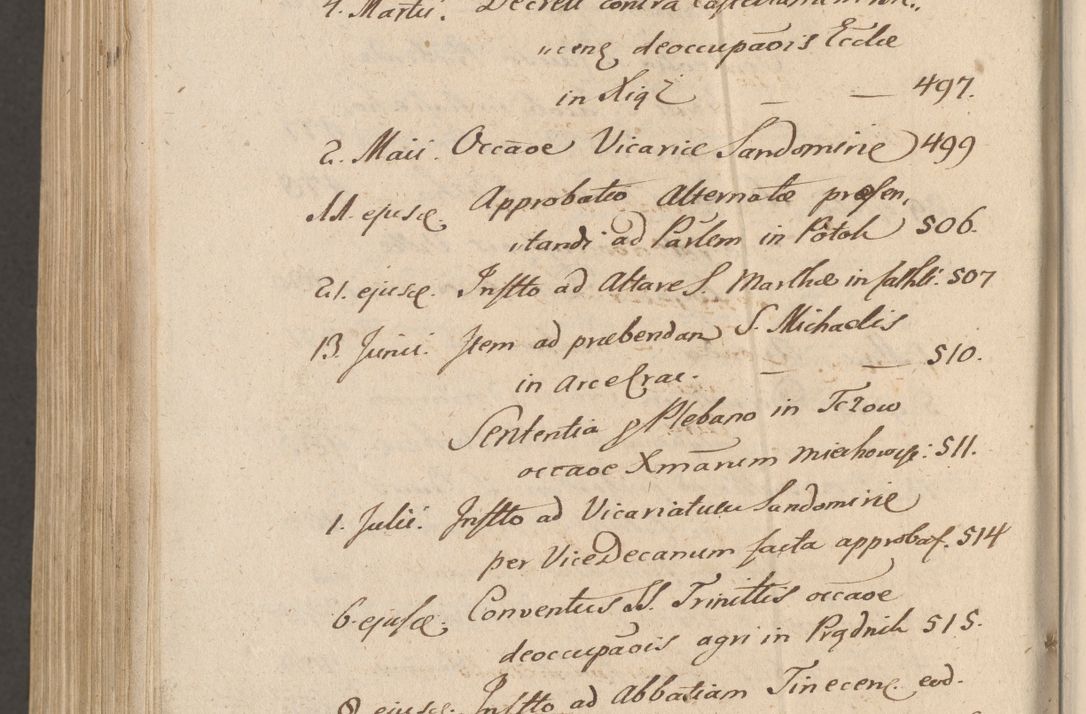 4. Martii. Decreti contra
ucenẽ deoccupãois Eccłæ
in Xiąž — — 497.
2. Maii. Occãoe Vicariæ Sandomiriæ 499
11. ejusd. Approbatio Alternatæ præsen,
,tandi ad Parlem in Potok 506.
21. ejusd. Instto ad Altare S. Marthæ in Cathli. 507
13. Junii. Item ad præbendam S. Michaelis
in Arce Crac. — — 510.
Sententia p Plebano in Tczow
occaoe Xmãrum Miechowje: 511.
1. Julii. Instto ad Vicariatum Sandomiriæ
per ViceDecanum facta approbat. 514
6. ejusd. Conventus SS. Trinittis occãoe
deoccupãois agri in Prądnik 515.
8. ejusd. Instto ad Abbatiam Tinecenẽ. eod.